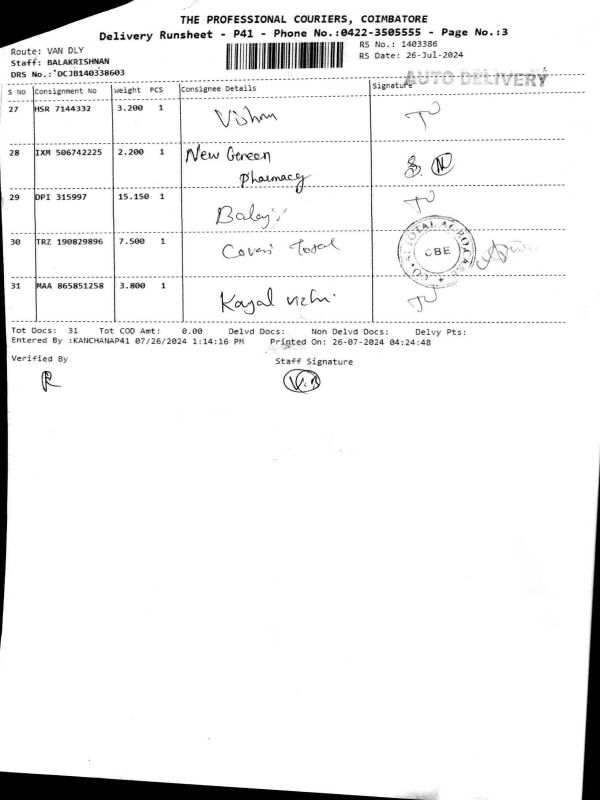 THE PROFESSIONAL COURIERS, COIMBATORE
Delivery Runsheet - P41 - Phone No.:0422-3505555 - Page No.:3
Route: VAN DLY
RS No.: 1403386
Staff: BALAKRISHNAN
RS Date: 26-Jul-2024
DRS No.: DCJB140338603
AUTO DELIVERY
S No Consignment No Weight PCS Consignee Details Signature
27 HSR 7144332 3.200 1 Vishnu
28 IXM 506742225 2.200 1 New Green
Pharmacy
29 DPI 315997 15.150 1 Balaji
30 TRZ 190829896 7.500 1 Total
CBE
31 MAA 865851258 3.800 1 Kayal vizhi
Tot Docs: 31 Tot COD Amt: 0.00 Delvd Docs: Non Delvd Docs: Delvy Pts:
Entered By :KANCHANAP41 07/26/2024 1:14:16 PM Printed On: 26-07-2024 04:24:48
Verified By
Staff Signature